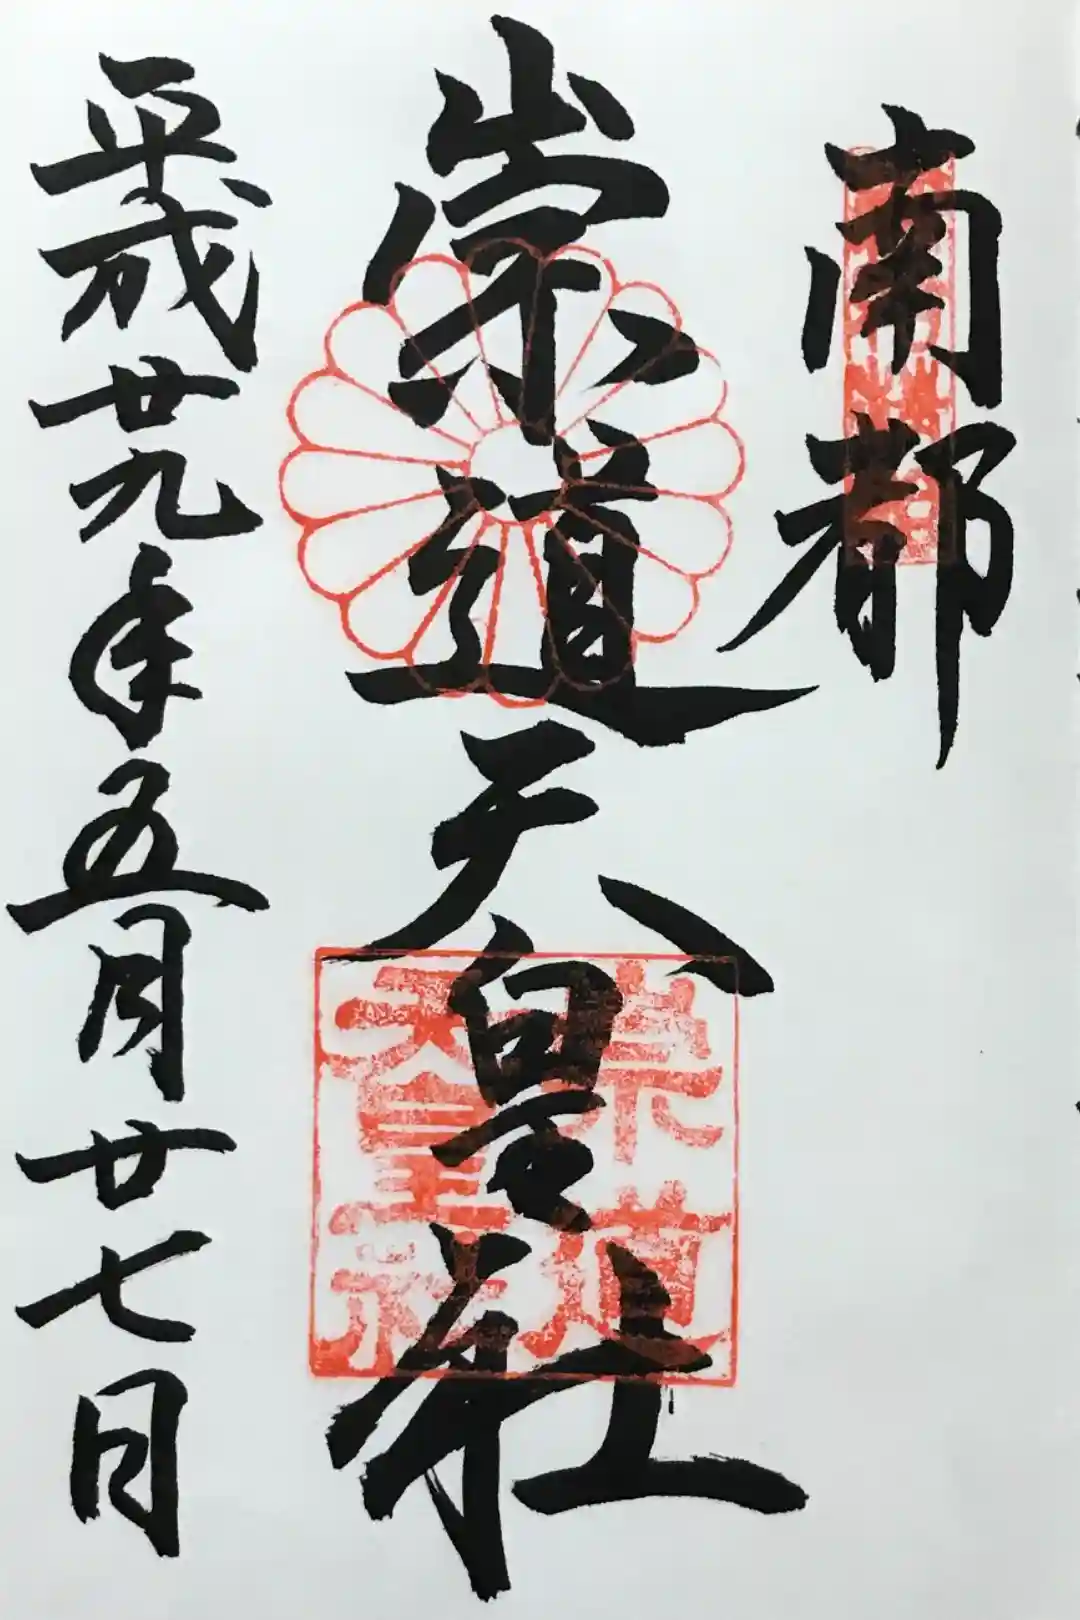 南都
崇道天皇社
平成廿九年五月廿七日
崇道
天皇社